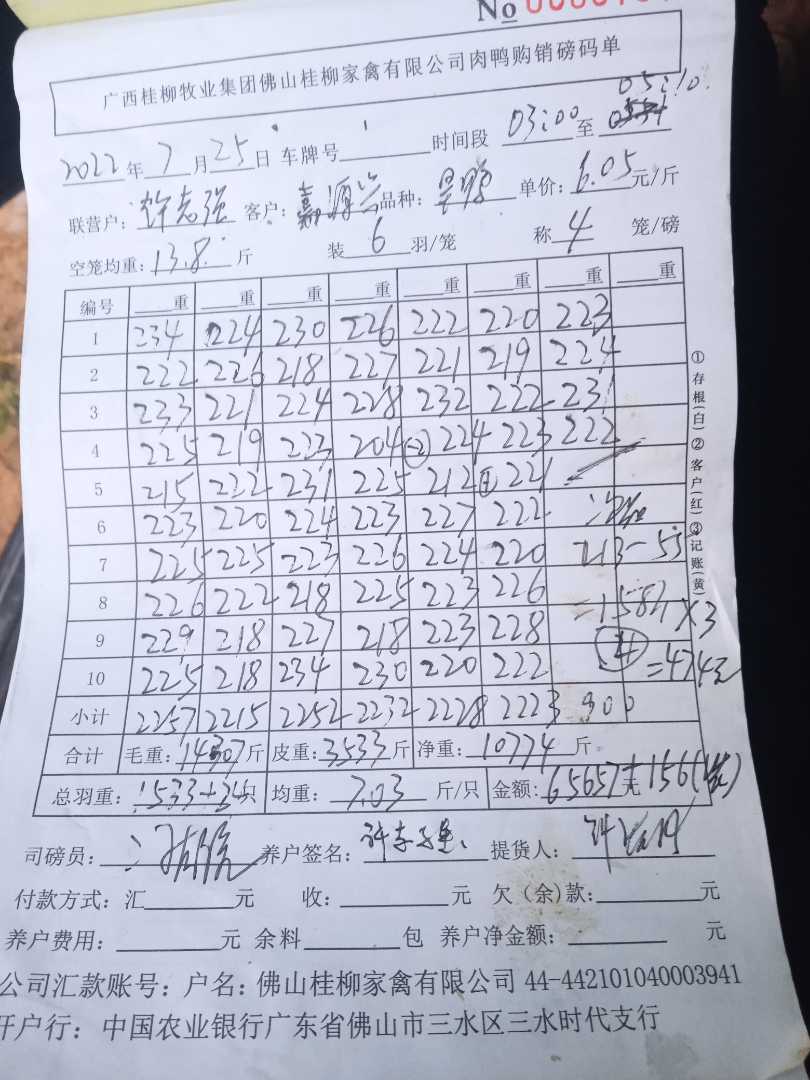 No
广西桂柳牧业集团佛山桂柳家禽有限公司肉鸭购销磅码单
05:10
2022年7月25日 车牌号 时间段 03:00至
联营户:许志强 客户:嘉源兴 品种: 单价:6.05元/斤
空笼均重:13.8斤 装6羽/笼 称4笼/磅
编号 重 重 重 重 重 重 重 重
1 234 224 230 226 222 220 223
2 222 226 218 227 221 219 224
3 233 221 224 228 232 222 231
4 225 219 223 204 (-2) 224 223 222
5 215 222 231 225 212 221
6 223 220 224 223 227 222
7 225 225 223 226 224 220 213-55
8 226 222 218 225 223 226 =158斤×3
9 229 218 227 218 223 228
10 225 218 234 230 220 222 =474元
小计 2257 2215 2252 2232 2228 2223 900
合计 毛重:14307斤 皮重:3533斤 净重:10774斤
总羽重:1533+34只 均重:7.03斤/只 金额:65657元+156
司磅员: 养户签名: 提货人:
付款方式:汇元 收:元 欠(余)款:元
养户费用:元 余料包 养户净金额:元
公司汇款账号:户名:佛山桂柳家禽有限公司 44-442101040003941
开户行:中国农业银行广东省佛山市三水区三水时代支行
①存根(白)②客户(红)③记账(黄)